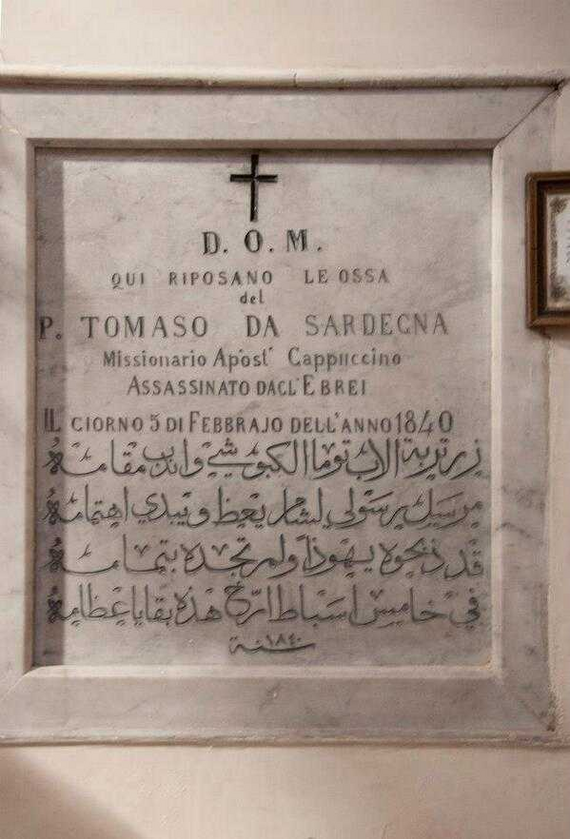 D. O. M.
QUI RIPOSANO LE OSSA
del
P. TOMASO DA SARDEGNA
Missionario Apost° Cappuccino
ASSASSINATO DAGL'EBREI
IL GIORNO 5 DI FEBBRAJO DELL'ANNO 1840
زر تربة الاب توما الكبوشي واندب مقامه
مرسل برستولي لشام يعظ ويبدي اهتمامه
قد ذبحوه يهودا ولم تجده بتمامه
في خامس اسباط ارخ هذه بقايا عظامه
سنة ١٨٤٠